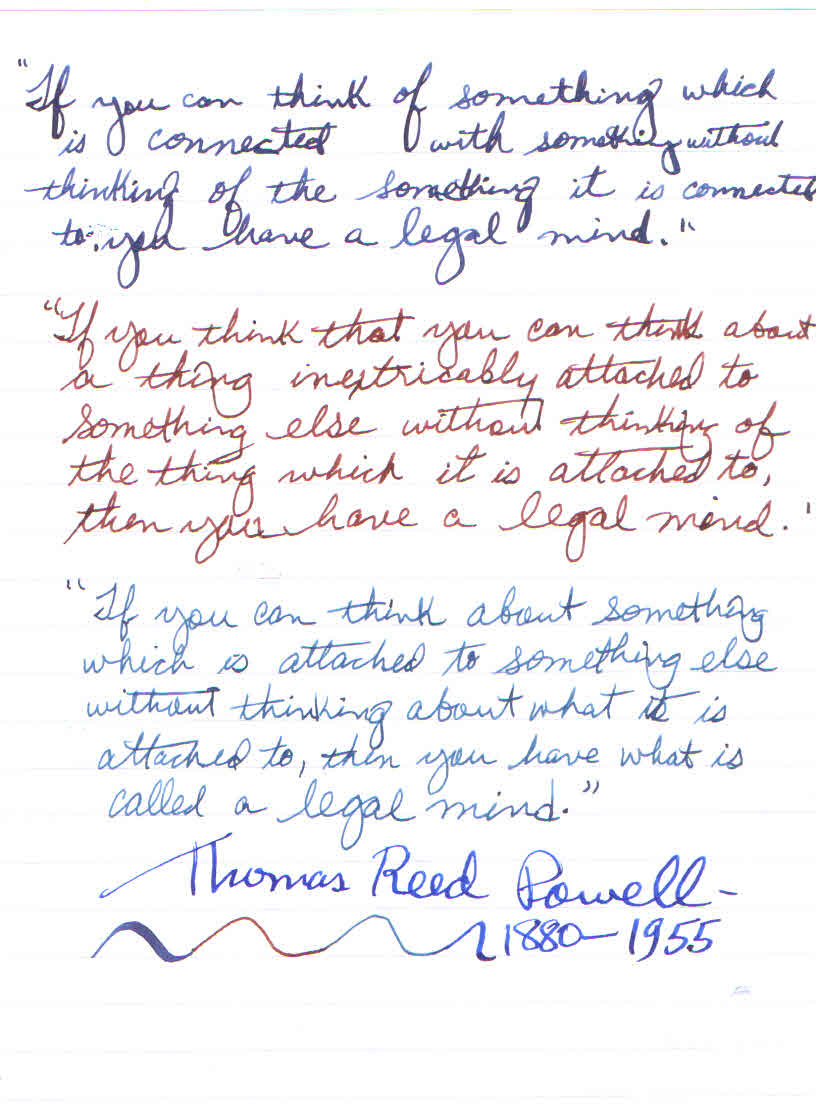 "If you can think of something which
is connected with something without
thinking of the something it is connected
to, you have a legal mind."
"If you think that you can think about
a thing inextricably attached to
something else without thinking of
the thing which it is attached to,
then you have a legal mind."
"If you can think about something
which is attached to something else
without thinking about what it is
attached to, then you have what is
called a legal mind."
Thomas Reed Powell-
1880-1955